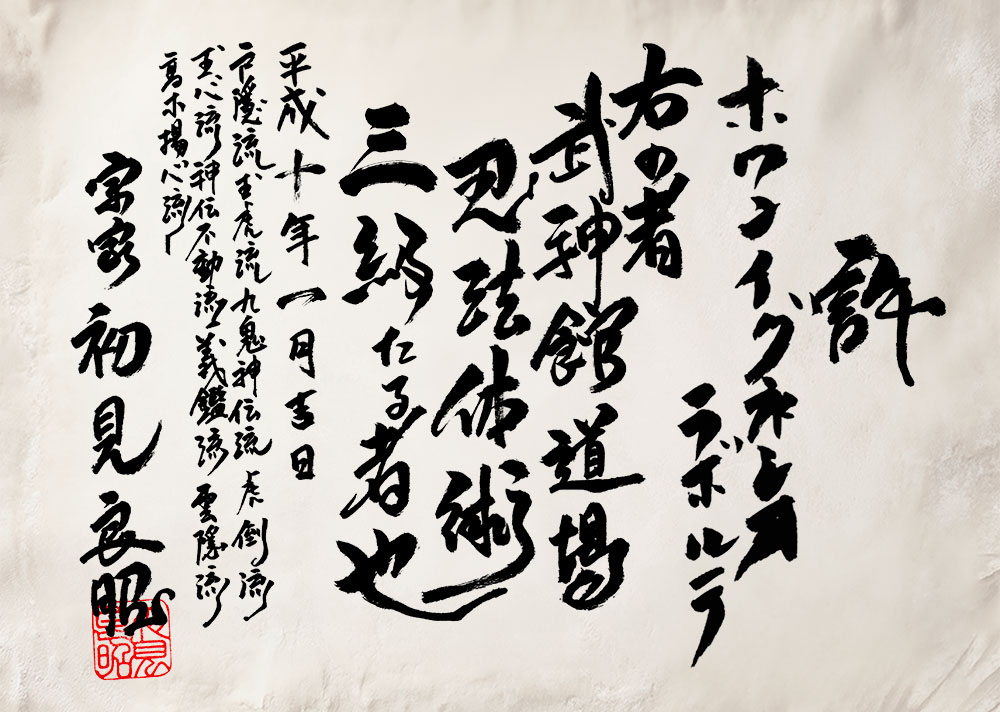 許
ホワン・イグネシオ
ラボルテ
右の者
武神館道場
忍法体術
三級たる者也
平成十年一月吉日
戸隠流 玉虎流 九鬼神伝流 虎倒流
玉心流 神伝不動流 義鑑流 雲隠流
高木揚心流
宗家 初見良昭